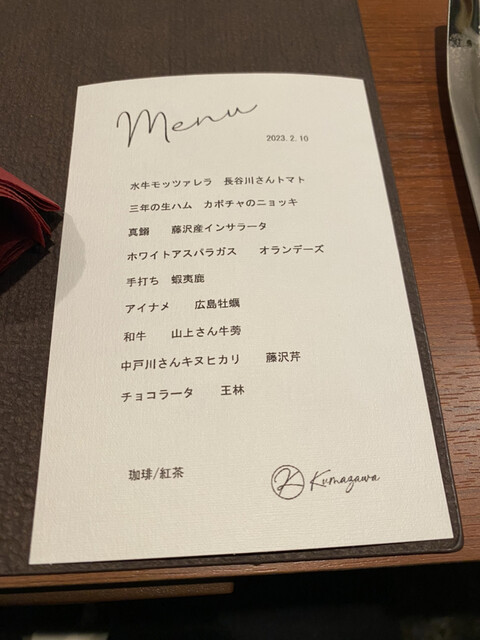 Menu
2023. 2. 10
水牛モッツァレラ 長谷川さんトマト
三年の生ハム カボチャのニョッキ
真鯔 藤沢産インサラータ
ホワイトアスパラガス オランデーズ
手打ち 蝦夷鹿
アイナメ 広島牡蠣
和牛 山上さん牛蒡
中戸川さんキヌヒカリ 藤沢芹
チョコラータ 王林
珈琲/紅茶
K Kumazawa